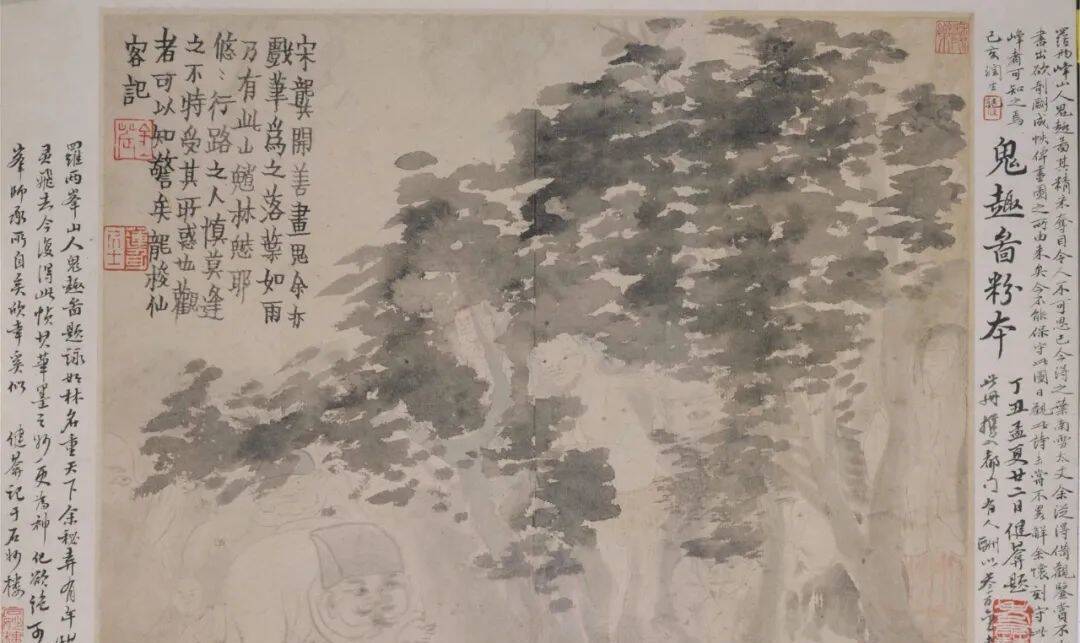 羅兩峰山人鬼趣啚其精采奪目令人不可思已今得之葉南雪太丈余從得借觀鑒賞不
書出欲剞劂成帙俾畫圖之所由来矣今不能保守此圖日觀此詩主嘗不異解余懷刻守此
峰者可知之焉
己亥潤生
鬼趣啚粉本
丁丑孟夏廿二日健葊題
此册攜入都门有人酬以叁百
宋龔開善畫鬼余亦
戲筆爲之落葉如雨
乃有此山魈林魅耶
悠〻行路之人慎莫逢
之不特受其所惑也觀
者可以知警矣龍梭仙
客記
羅兩峯山人鬼趣啚題詠如林名重天下余秘弆有年
灵飛去今復得此帧其筆墨之妙更為神化欲绝可
峯師承所自矣欣幸奚似
健葊記于石妙楼